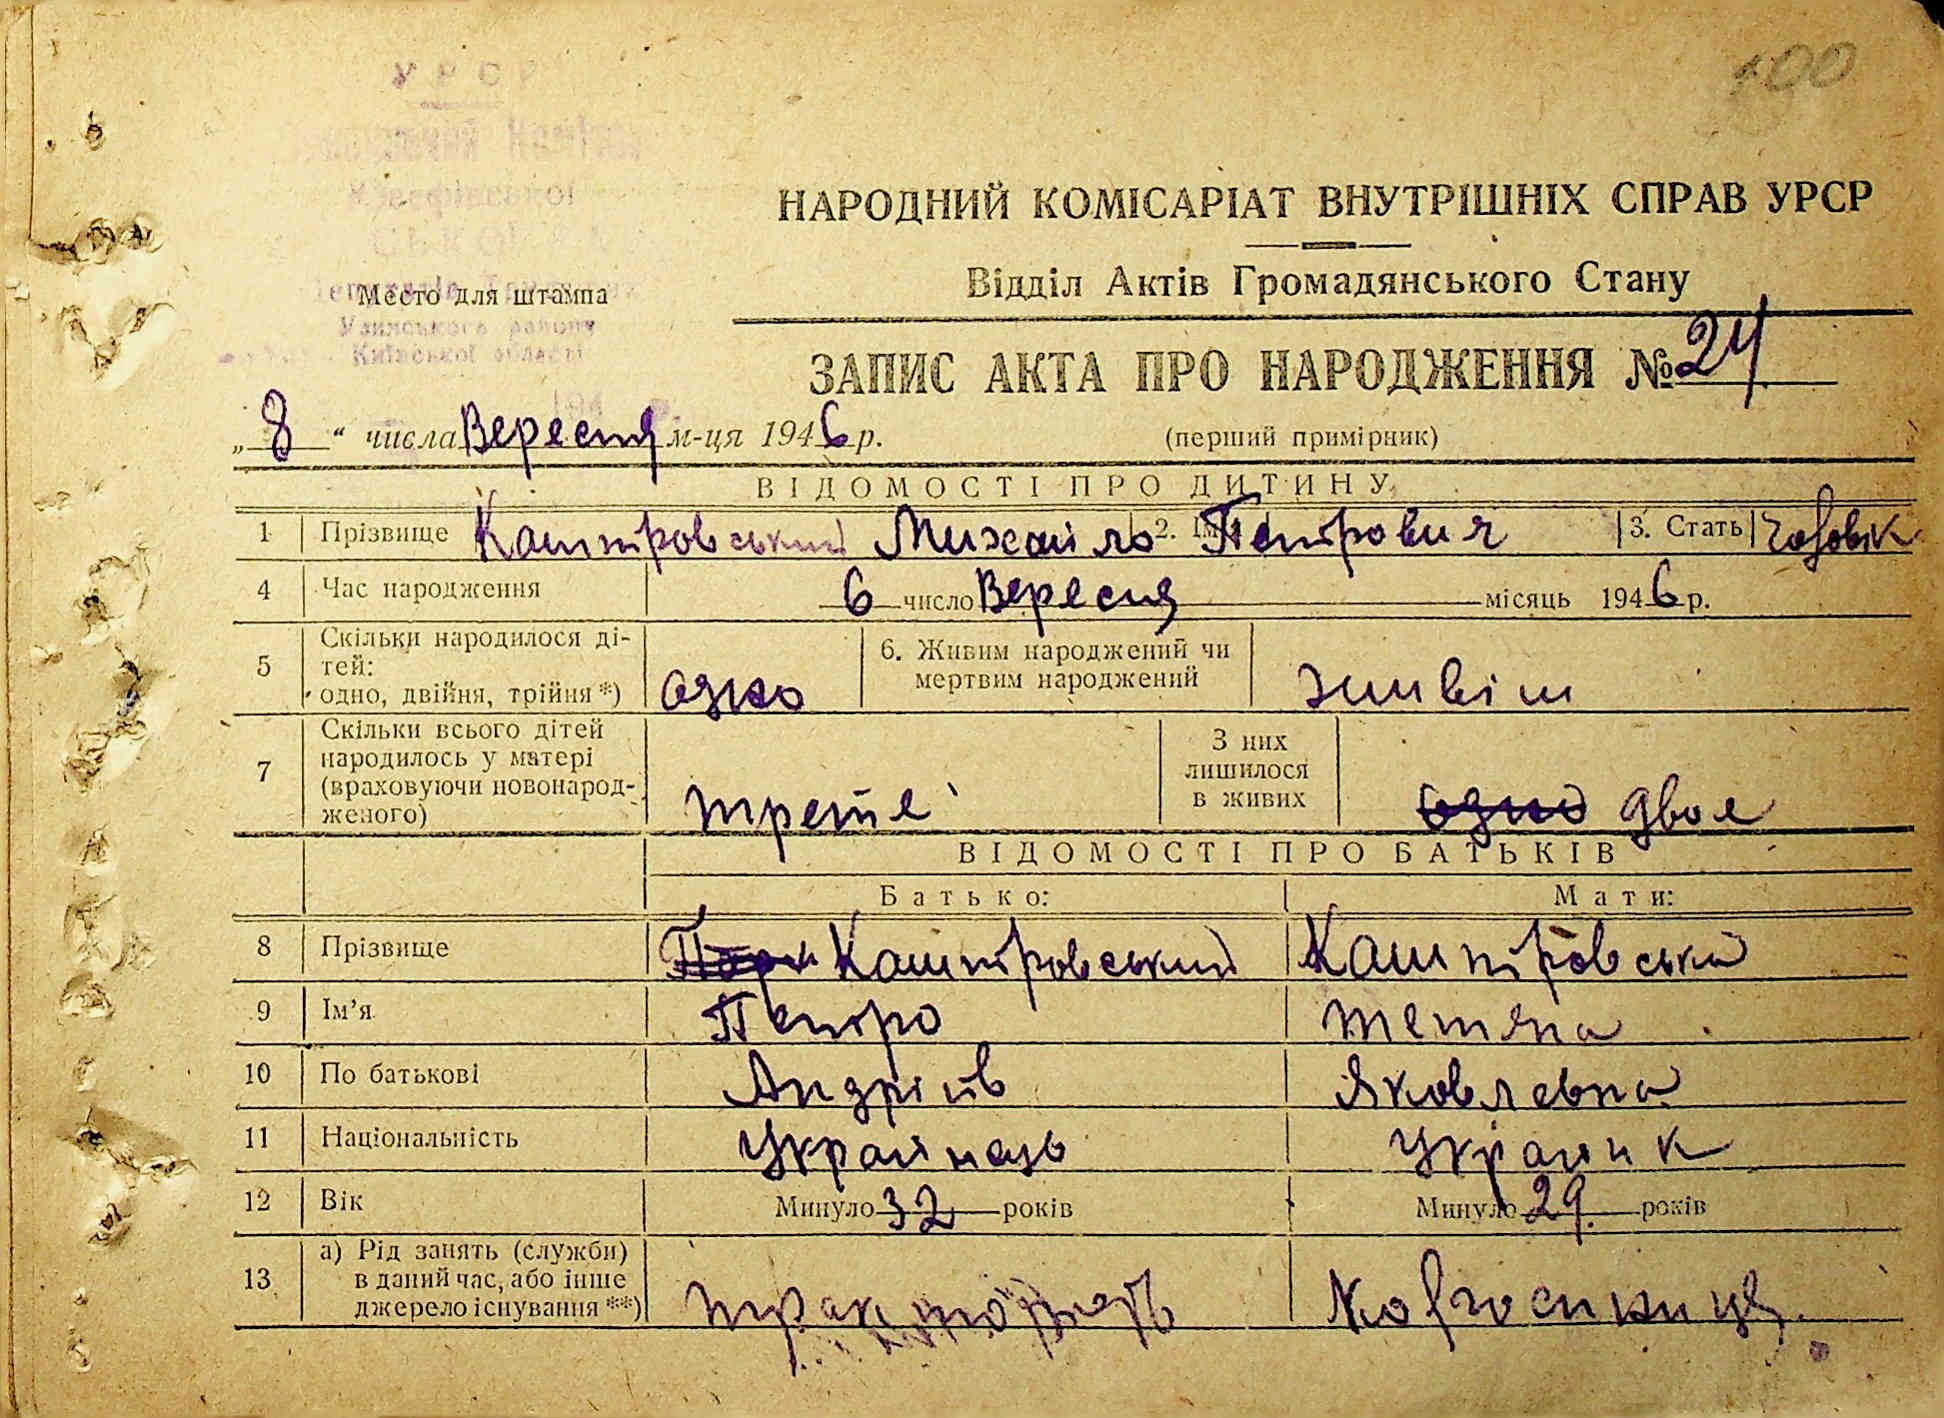 100
УРСР
НАРОДНИЙ КОМІСАРІАТ ВНУТРІШНІХ СПРАВ УРСР
Відділ Актів Громадянського Стану
Место для штампа
Узинського району
Київської області
ЗАПИС АКТА ПРО НАРОДЖЕННЯ № 24
„ 8 “ числа Вересня м-ця 1946 р. (перший примірник)
ВІДОМОСТІ ПРО ДИТИНУ
1 Прізвище Каштровський Михайло 2. Ім'я Петрович 3. Стать чоловік
4 Час народження 6 число Вересня місяць 1946 р.
5 Скільки народилося ді-
тей:
одно, двійня, трійня *) одно 6. Живим народжений чи
мертвим народжений живім
7 Скільки всього дітей
народилось у матері
(враховуючи новонарод-
женого) третє З них
лишилося
в живих одно двоє
ВІДОМОСТІ ПРО БАТЬКІВ
Батько: Мати:
8 Прізвище Каштровський Каштровська
9 Ім'я Петро Тетяна
10 По батькові Андріїв Яковлевна
11 Національність Українець Українк
12 Вік Минуло 32 років Минуло 29 років
13 а) Рід занять (служби)
в даний час, або інше
джерело існування **) Колгоспниця